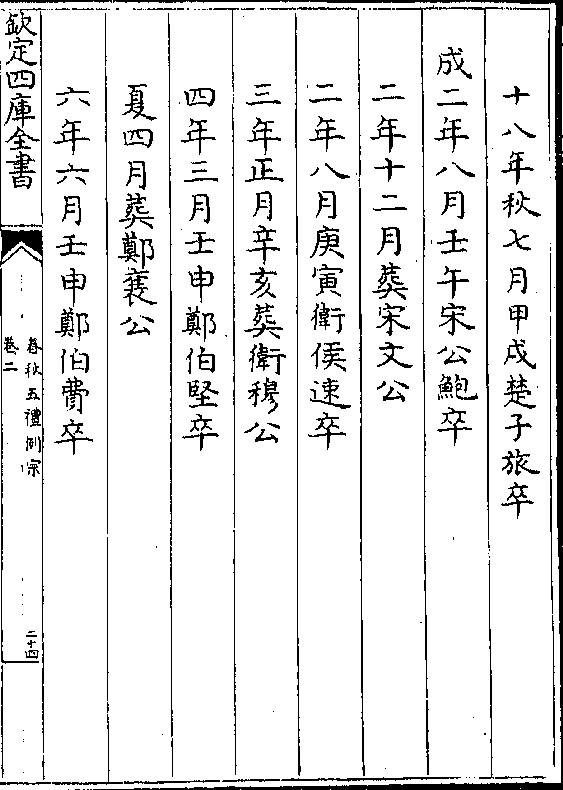 十八年秋七月甲戌楚子旅卒
成二年八月壬午宋公鮑卒
二年十二月葬宋文公
二年八月庚寅衛侯速卒
三年正月辛亥葬衛穆公
四年三月壬申鄭伯堅卒
夏四月葬鄭襄公
六年六月壬申鄭伯費卒
欽定四庫全書
春秋五禮例宗
卷二
二十四